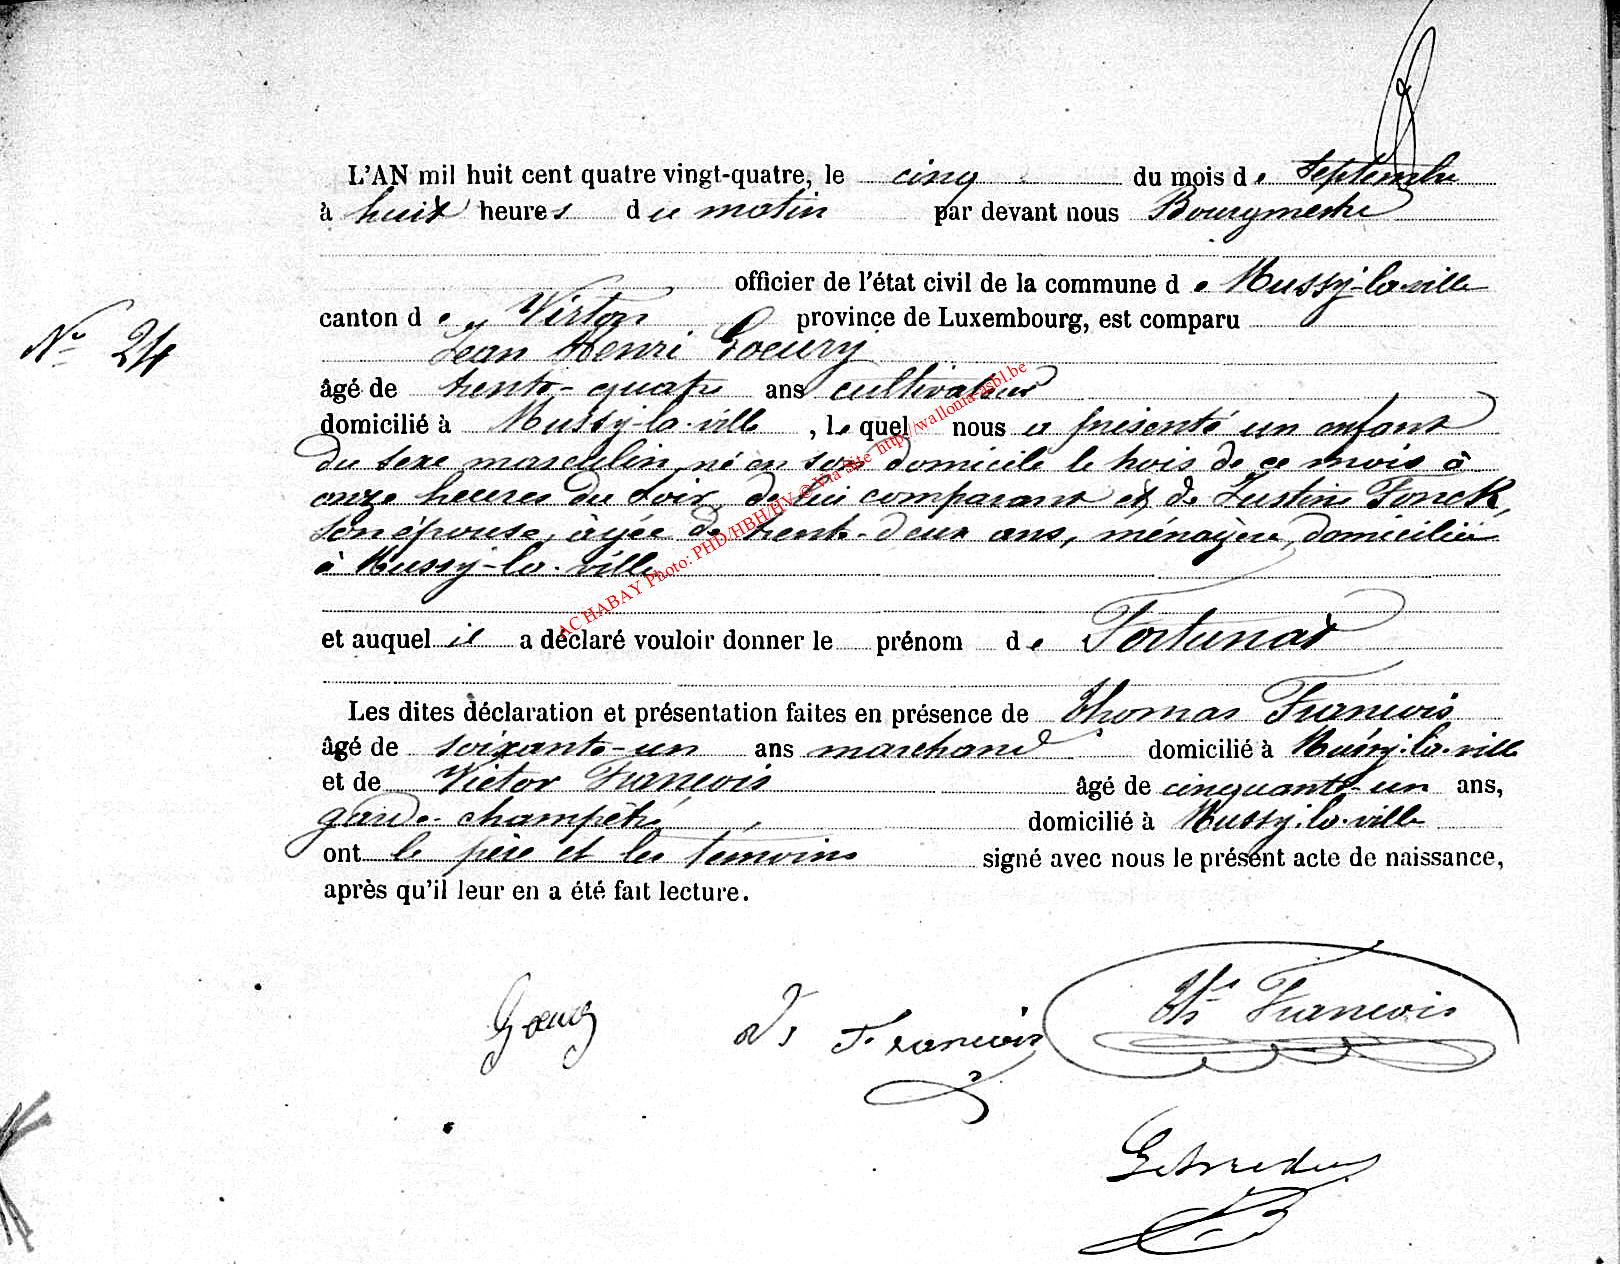 L'AN mil huit cent quatre vingt-quatre, le cinq du mois de Septembre
à huit heures du matin par devant nous Bourgmestre
officier de l'état civil de la commune de Mussy-la-ville
canton de Virton province de Luxembourg, est comparu
N° 24
Jean Henri Goeury
âgé de trente-quatre ans cultivateur
domicilié à Mussy-la-ville, lequel nous a présenté un enfant
du sexe masculin, né en son domicile le trois de ce mois à
onze heures du soir, de lui comparant et de Justine Fonck,
son épouse, âgée de trente-deux ans, ménagère, domiciliée
à Mussy-la-ville
AC HABAY Photo: PHD/HBH/HV © Via Site http://wallonia-asbl.be
et auquel il a déclaré vouloir donner le prénom de Fortunat
Les dites déclaration et présentation faites en présence de Thomas François
âgé de soixante-un ans marchand domicilié à Mussy-la-ville
et de Victor François âgé de cinquante-un ans,
garde-champêtre domicilié à Mussy-la-ville
ont le père et les témoins signé avec nous le présent acte de naissance,
après qu'il leur en a été fait lecture.
Goeury
Vr François
Ths François